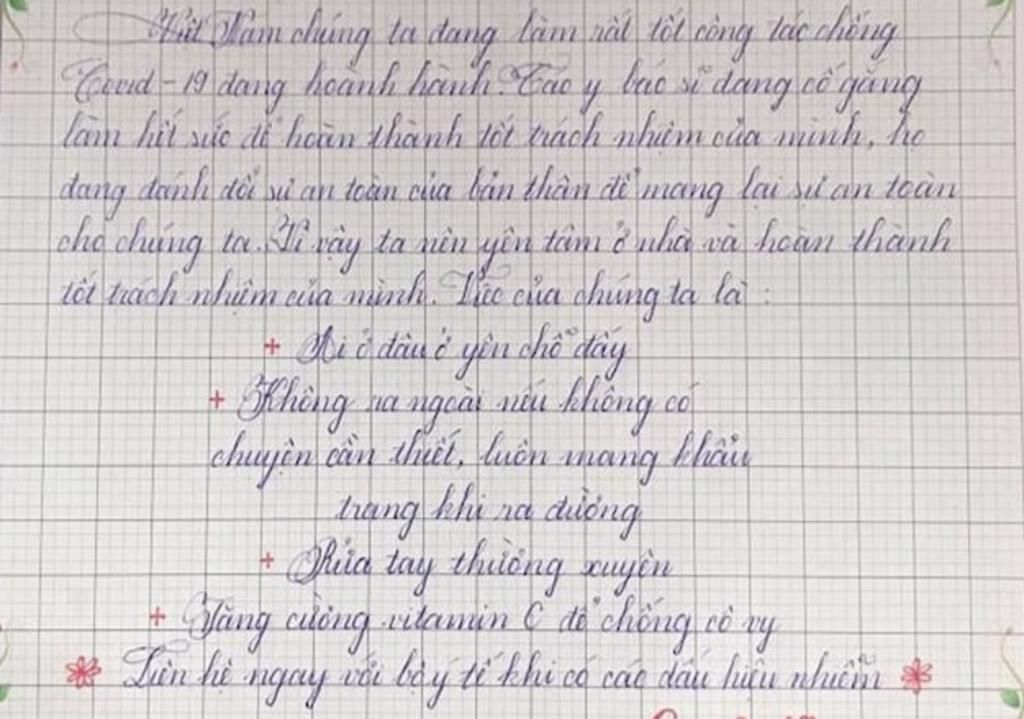 Việt Nam chúng ta đang làm rất tốt công tác chống
Covid-19 đang hoành hành. Các y bác sĩ đang cố gắng
làm hết sức để hoàn thành tốt trách nhiệm của mình, họ
đang đánh đổi sự an toàn của bản thân để mang lại sự an toàn
cho chúng ta. Vì vậy ta nên yên tâm ở nhà và hoàn thành
tốt trách nhiệm của mình. Việc của chúng ta là :
+ Ai ở đâu ở yên chỗ đấy
+ Không ra ngoài nếu không có
chuyện cần thiết, luôn mang khẩu
trang khi ra đường
+ Rửa tay thường xuyên
+ Tăng cường vitamin C để chống cô vy
Liên hệ ngay với bộ y tế khi có các dấu hiệu nhiễm